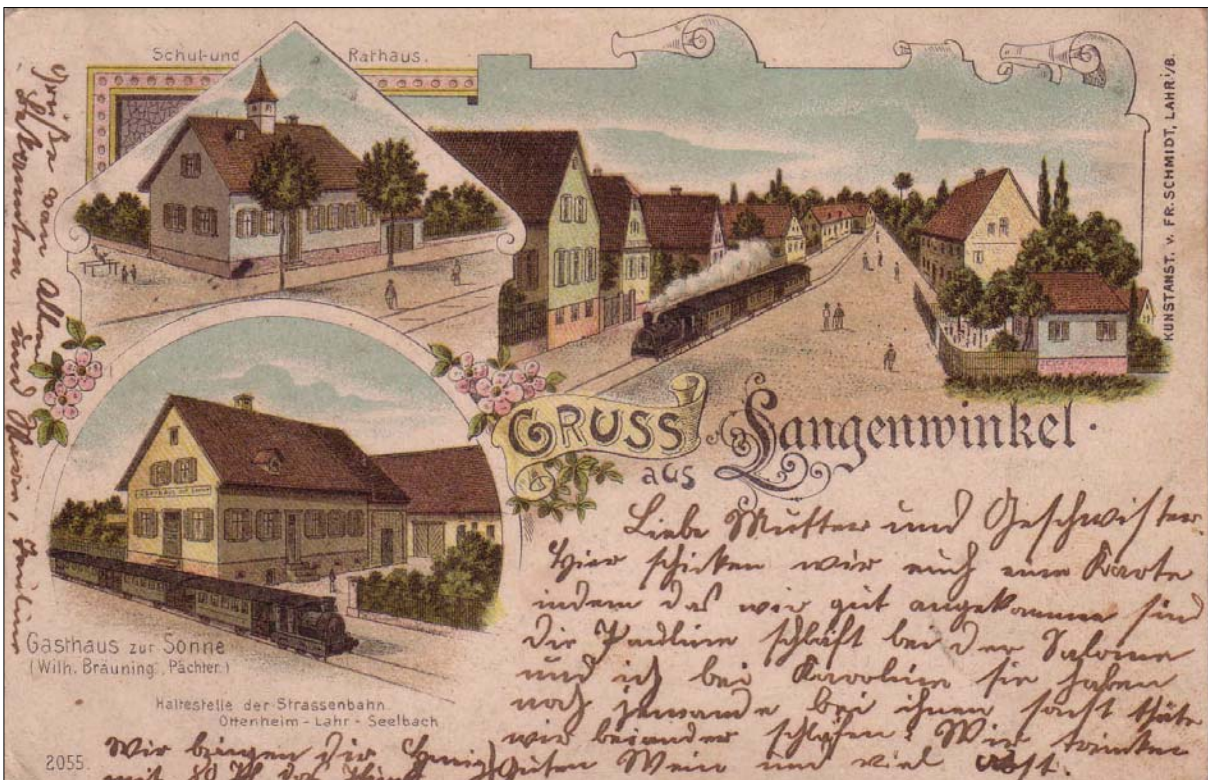 Schul-und Rathaus.
KUNSTANST. v. FR. SCHMIDT, LAHR i/B.
GRUSS aus Langenwinkel.
Gasthaus zur Sonne
(Wilh. Bräuning, Pächter.)
Haltestelle der Strassenbahn.
Ottenheim - Lahr - Seelbach
2055.
Liebe Mutter und Geschwister
Hier schicken wir euch eine Karte
indem das wir gut angekomme sind
die Pauline schläft bei der Salome
und ich bei Karoline sie haben
noch jemande bei ihnen sonst thäte
wir beiander schlafen. Wir trinken
guten Wein und viel
Wir bringen
mit
Grüße von Allen
Bekannten und